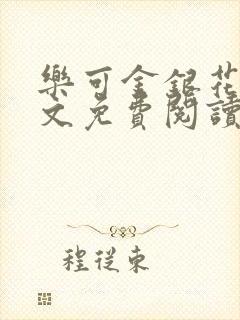 樂可金銀花
文免費閱讀
程從東